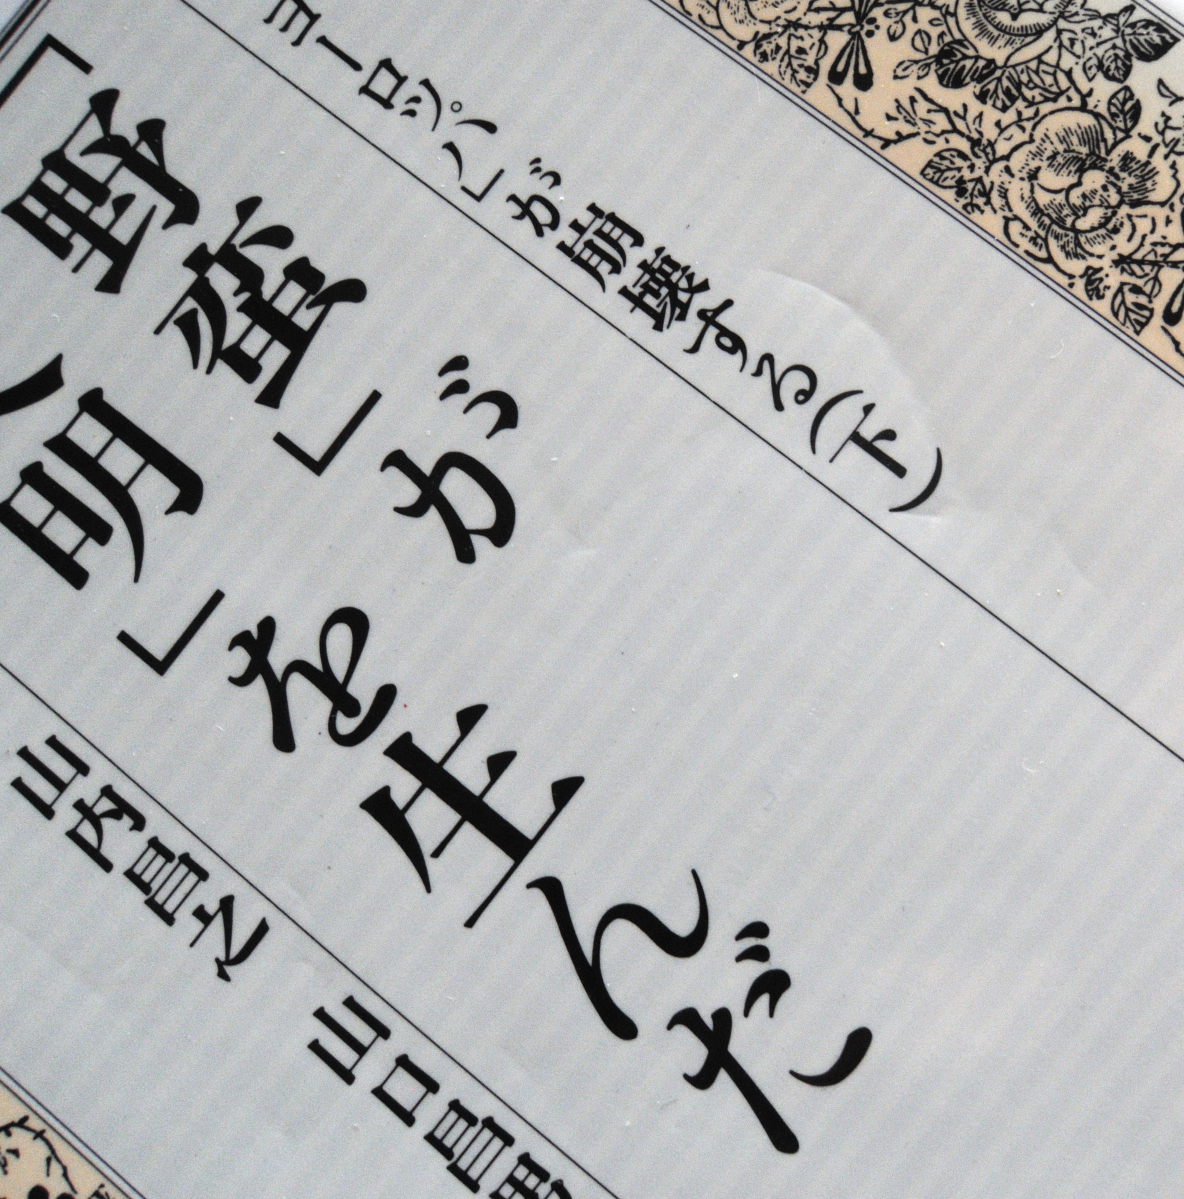 ヨーロッパ」が崩壊する(下)
「野蛮」が
明」を生んだ
山内昌之 山口昌男